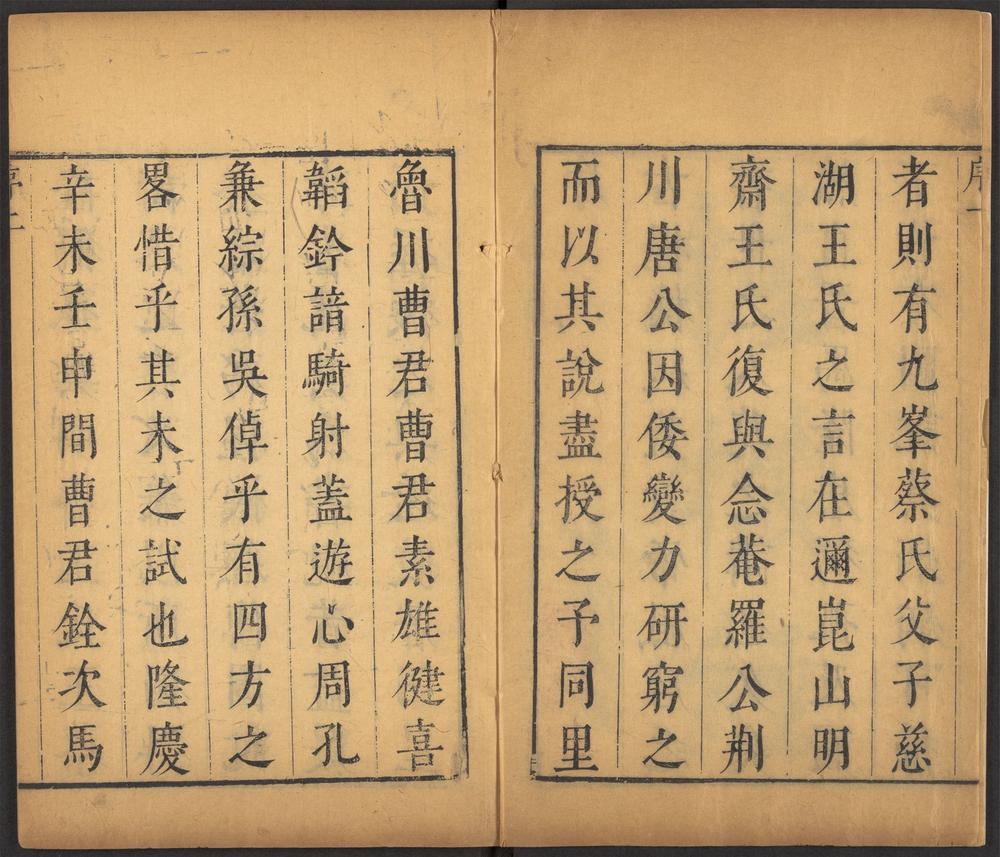 序一
者則有九峯蔡氏父子慈
湖王氏之言在邇崑山明
齋王氏復與念菴羅公荆
川唐公因倭變力研窮之
而以其說盡授之予同里
魯川曹君曹君素雄健喜
韜鈐諳騎射蓋遊心周孔
兼綜孫吳倬乎有四方之
畧惜乎其未之試也隆慶
辛未壬申間曹君銓次馬
序二